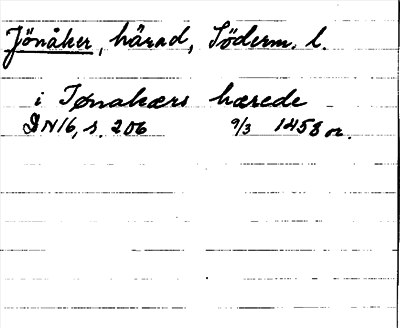 Jönåker, härad, Söderm. l.
i Jønakærs hærede
DN 16, s. 206 9/3 1458 or.